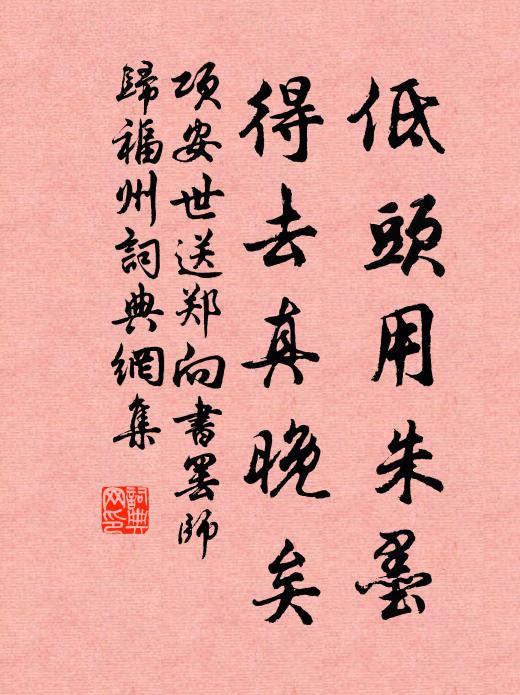 低頭用朱墨
得去真晚矣
项安世送郑向書罢師
歸福州詞典網集
詞典网印